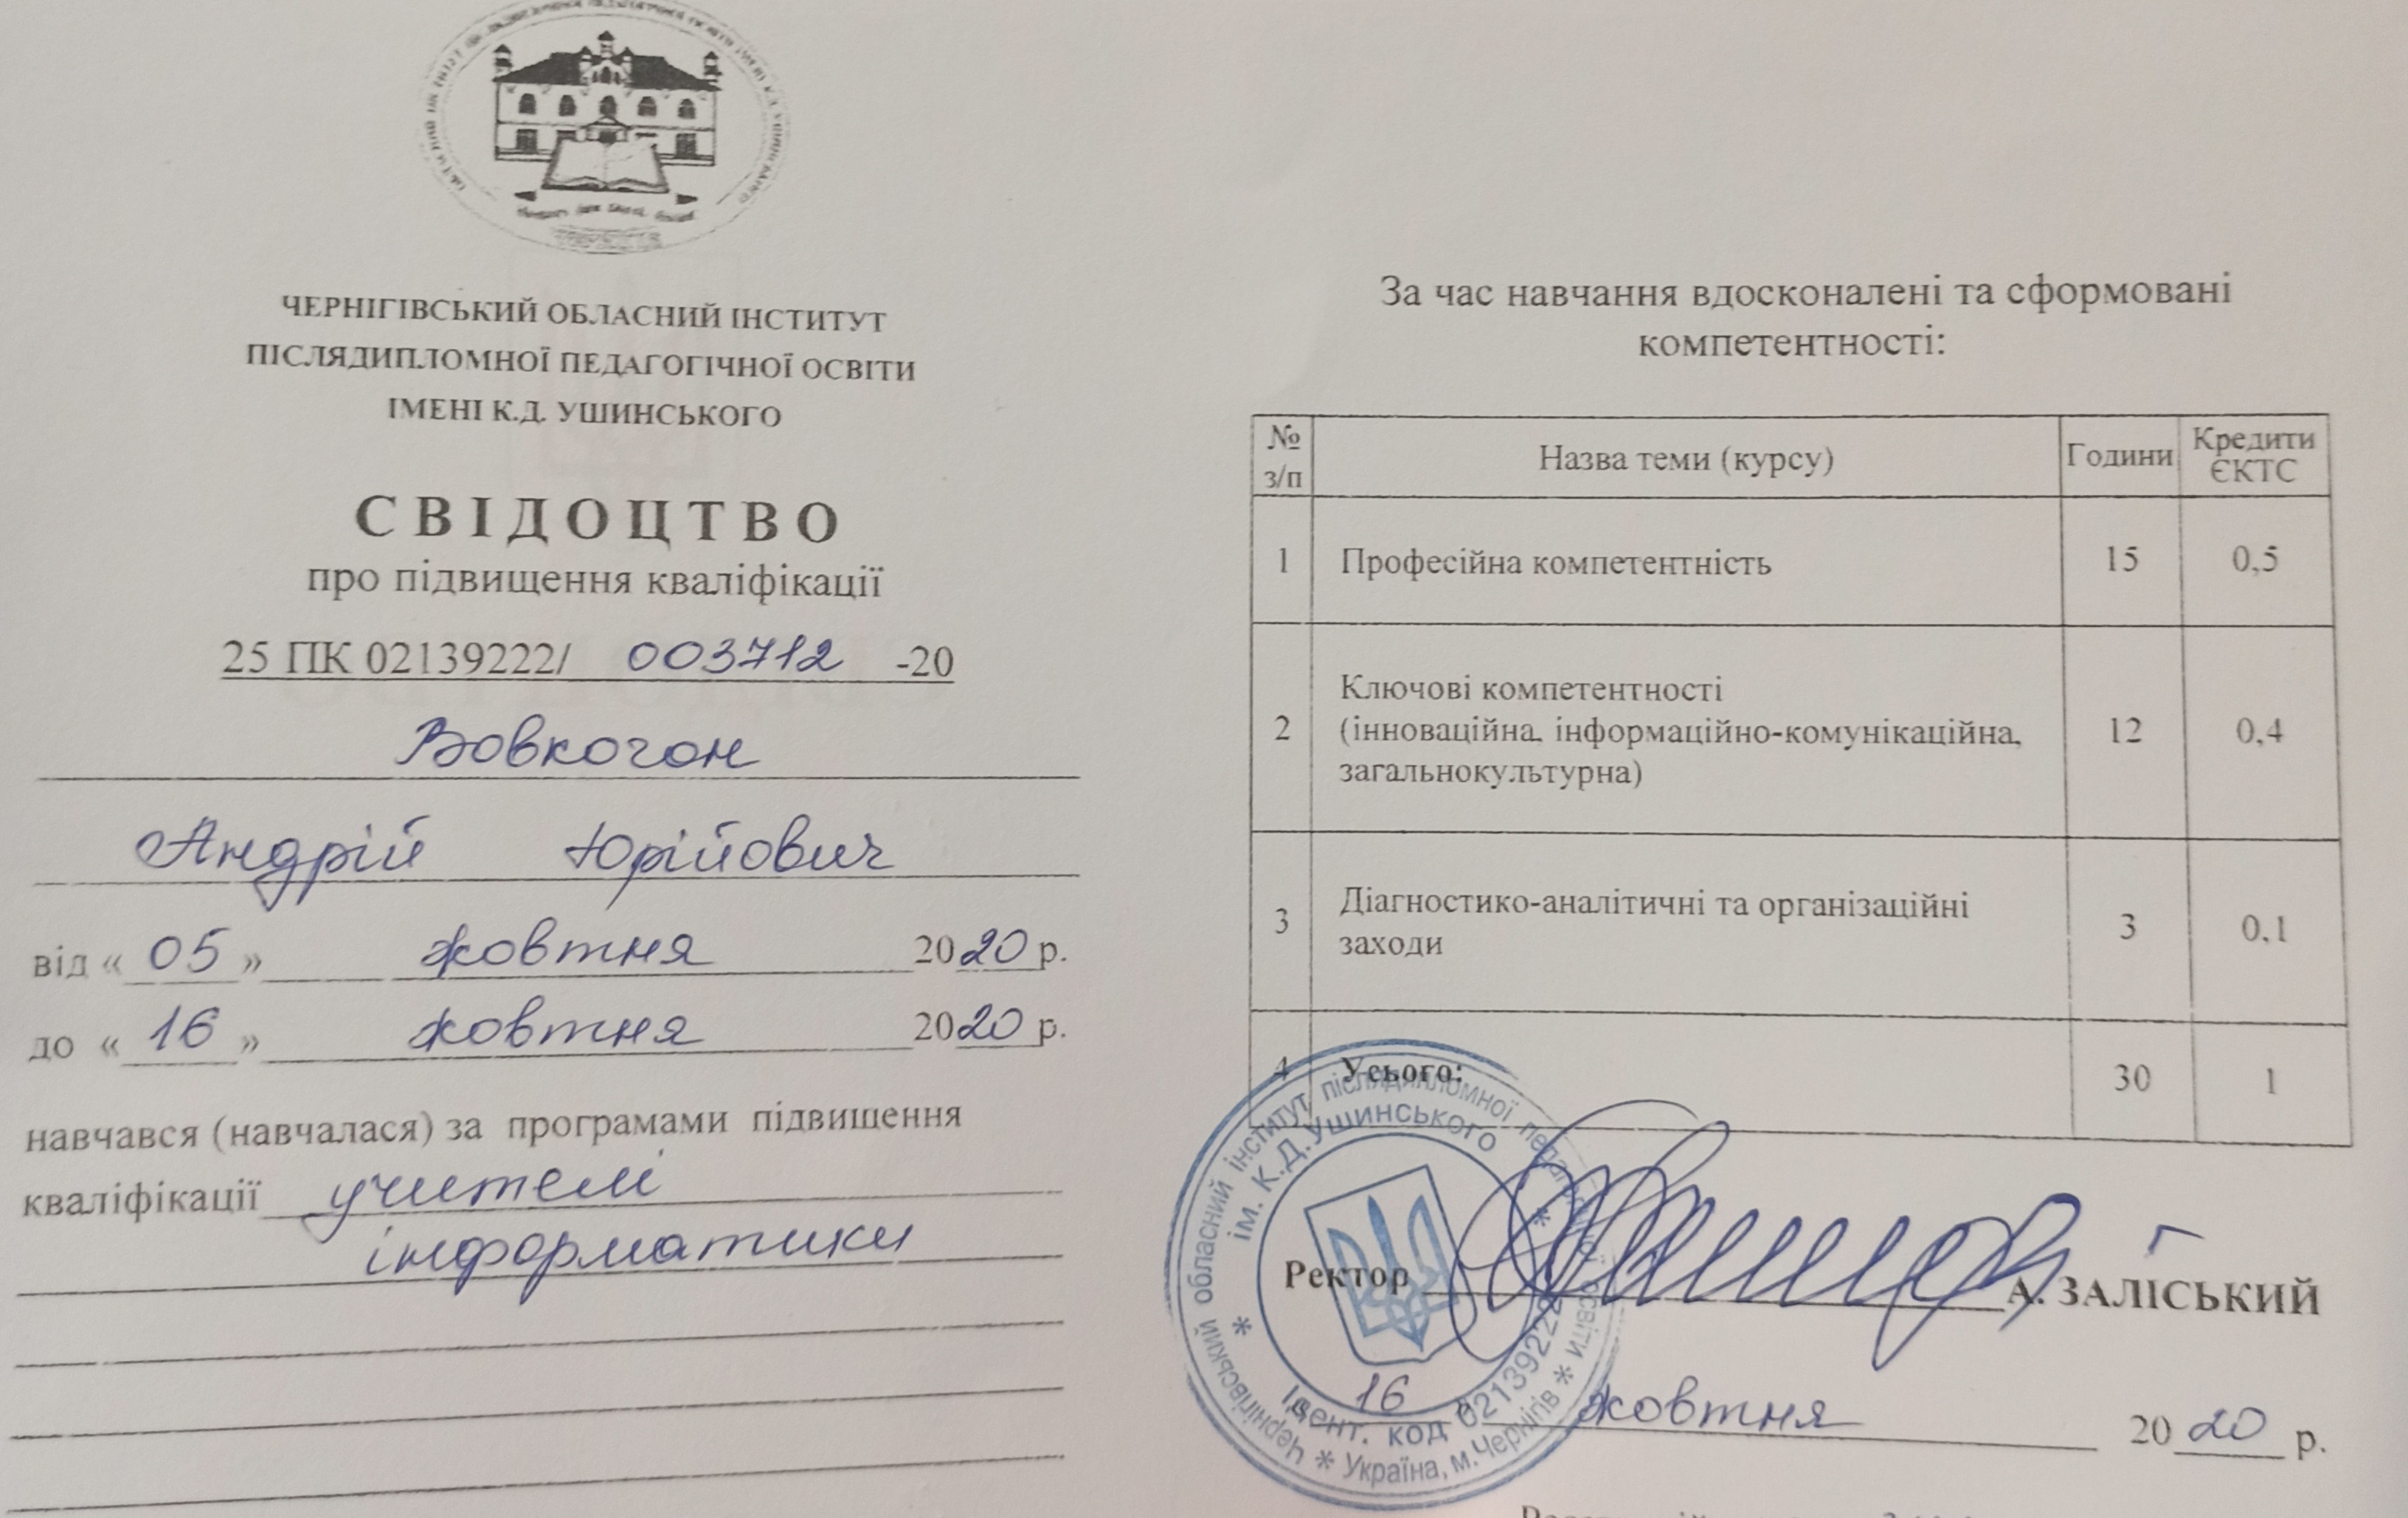 ЧЕРНІГІВСЬКИЙ ОБЛАСНИЙ ІНСТИТУТ
ПІСЛЯДИПЛОМНОЇ ПЕДАГОГІЧНОЇ ОСВІТИ
ІМЕНІ К.Д. УШИНСЬКОГО
СВІДОЦТВО
про підвищення кваліфікації
25 ПК 02139222/ 003712 -20
Вовкогон
Андрій Юрійович
від « 05 » жовтня 2020 р.
до « 16 » жовтня 2020 р.
навчався (навчалася) за програмами підвищення
кваліфікації учителі
інформатики
За час навчання вдосконалені та сформовані
компетентності:
№ з/п Назва теми (курсу) Години Кредити ЄКТС
1 Професійна компетентність 15 0,5
2 Ключові компетентності
(інноваційна, інформаційно-комунікаційна,
загальнокультурна) 12 0,4
3 Діагностико-аналітичні та організаційні
заходи 3 0,1
4 Усього: 30 1
Ректор А. ЗАЛІСЬКИЙ
16 жовтня 2020 р.
Чернігівський обласний інститут післядипломної педагогічної освіти
ім. К.Д.Ушинського
Ідент. код 02139222
Україна, м. Чернігів